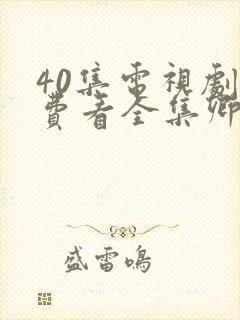 40集電視劇
費看全集鄉
盛雷鳴